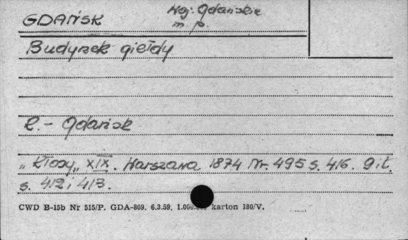 GDAŃSK
Woj: Gdańskie
m. p.
Budynek giełdy
R. - Gdańsk
„Kłosy„ XIX. Warszawa 1874 Nr. 495 s. 416. 9 il.
s. 412 i 413.
CWD B-15b Nr 515/P. GDA-869. 6.3.59. karton 180/V.